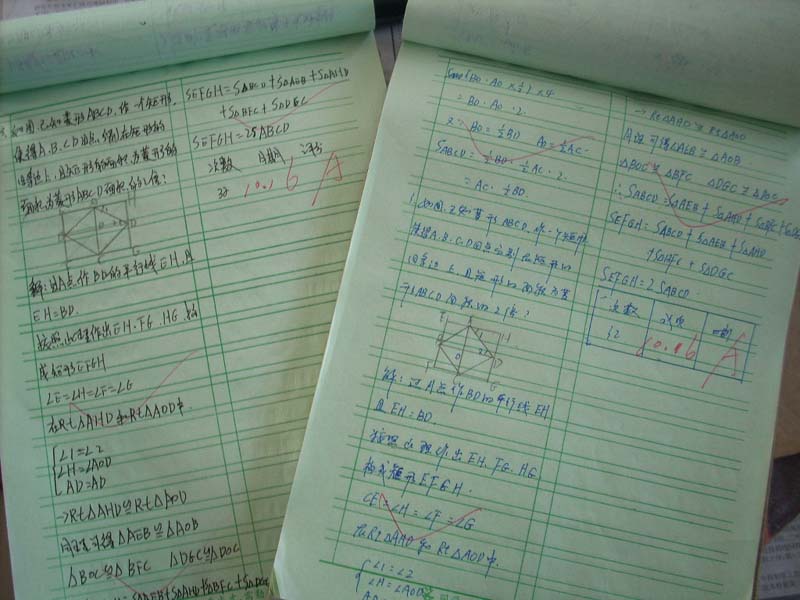 如图,已知菱形ABCD,作一个矩形,
使得A、B、C、D四点分别在矩形的
四条边上,且矩形的面积为菱形的
ABCD面积的2倍:
解:过A点作BD的平行线EH,且
EH=BD.
按照此理作出EH、FG、HG,构
成矩形EFGH
∠E=∠H=∠F=∠G
在Rt△AHD和Rt△AOD中
∠1=∠2
∠H=∠AOD
AD=AD
→Rt△AHD≌Rt△AOD
同理可得△AEB≌△AOB
△BOC≌△BFC △DGC≌△DOC
SEFGH=SABCD+S△AEB+S△AHD
+S△BFC+S△DGC
SEFGH=2SABCD
次数 日期 评分
10.16 A
(BO·AO×½)×4
=BO·AO·2.
又∵BO=½BD AO=½AC
SABCD=½BD·½AC·2.
=AC·½BD.
1.如图,已知菱形ABCD,作一个矩形
使得A、B、C、D四点分别在矩形的
四条边上,且矩形的面积为菱
形ABCD面积的2倍:
解:过A点作BD的平行线EH
且EH=BD.
按照此理作出EH、FG、HG
构成矩形EFGH.
∠E=∠H=∠F=∠G
在Rt△AHD和Rt△AOD中.
∠1=∠2
∠H=∠AOD
→Rt△AHD≌Rt△AOD
同理可得△AEB≌△AOB
△BOC≌△BFC △DGC≌△DOC
∴SABCD=S△AEB+S△AHD+S△BFC+
SEFGH=SABCD+S△AEB+S△AHD
+S△BFC+S△DGC
SEFGH=2SABCD.
次数
12 10.16 A